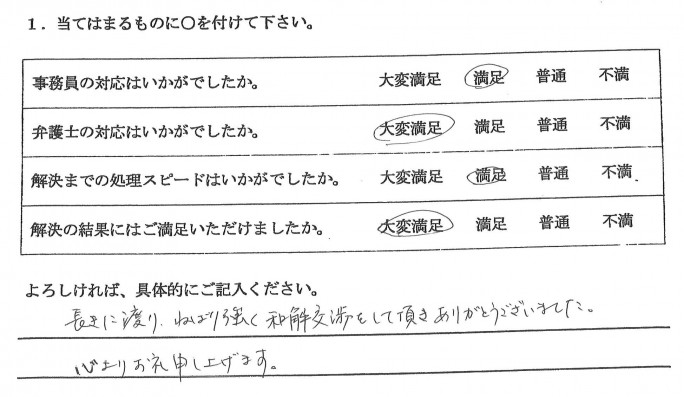 1．当てはまるものに○を付けて下さい。
事務員の対応はいかがでしたか。 大変満足 満足 普通 不満
弁護士の対応はいかがでしたか。 大変満足 満足 普通 不満
解決までの処理スピードはいかがでしたか。 大変満足 満足 普通 不満
解決の結果にはご満足いただけましたか。 大変満足 満足 普通 不満
よろしければ、具体的にご記入ください。
長きに渡り、ねばり強く和解交渉をして頂きありがとうございました。
心よりお礼申し上げます。